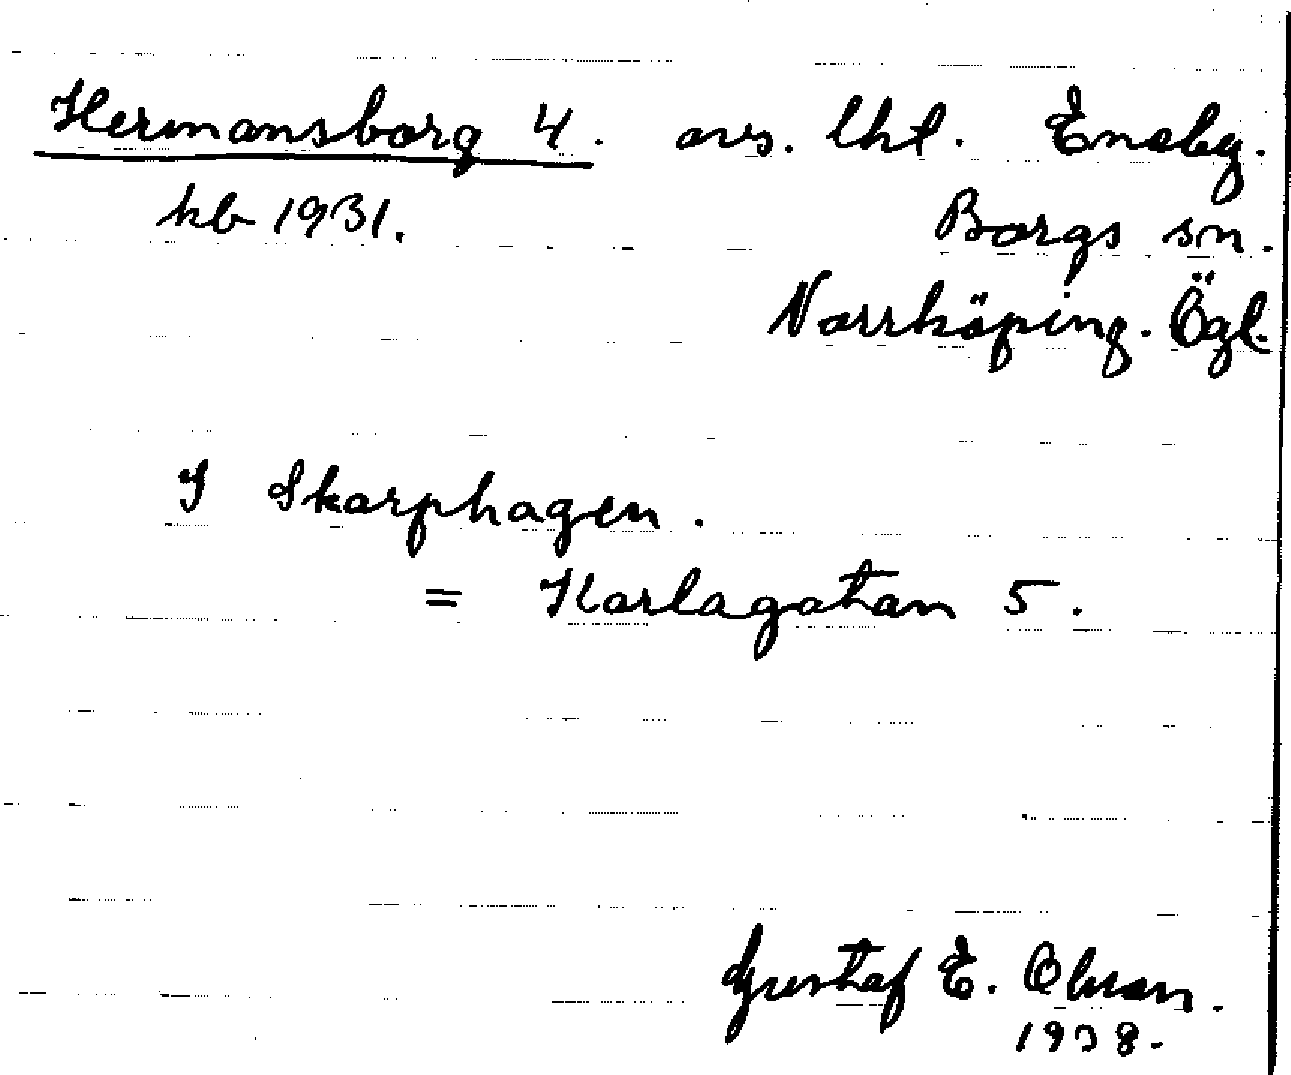 Hermansborg 4. avs. lht. Eneby.
kb 1931. Borgs sn.
Norrköping. Ögl.
I Skarphagen.
= Karlagatan 5.
Gustaf E. Olsson.
1938.